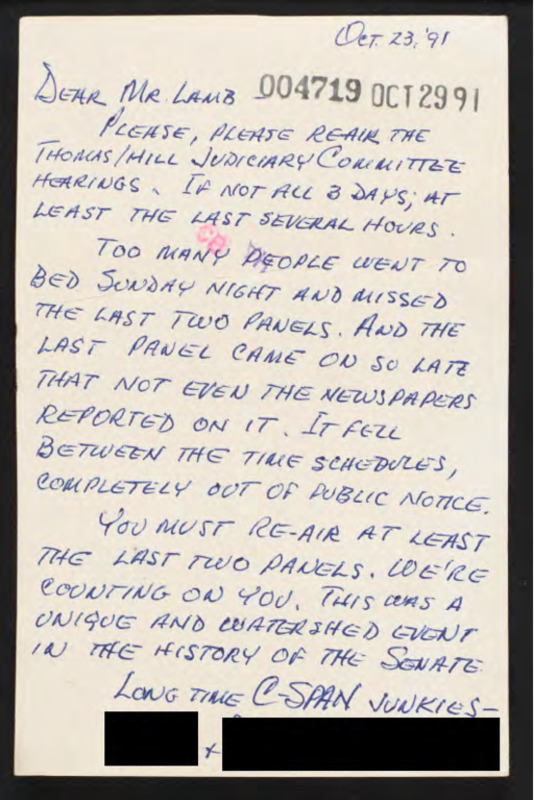 Oct. 23, '91
DEAR MR. LAMB 004719 OCT 29 91
PLEASE, PLEASE REAIR THE
THOMAS/HILL JUDICIARY COMMITTEE
HEARINGS. IF NOT ALL 3 DAYS; AT
LEAST THE LAST SEVERAL HOURS.
TOO MANY PEOPLE WENT TO
BED SUNDAY NIGHT AND MISSED
THE LAST TWO PANELS. AND THE
LAST PANEL CAME ON SO LATE
THAT NOT EVEN THE NEWSPAPERS
REPORTED ON IT. IT FELL
BETWEEN THE TIME SCHEDULES,
COMPLETELY OUT OF PUBLIC NOTICE.
YOU MUST RE-AIR AT LEAST
THE LAST TWO PANELS. WE'RE
COUNTING ON YOU. THIS WAS A
UNIQUE AND WATERSHED EVENT
IN THE HISTORY OF THE SENATE
LONG TIME C-SPAN JUNKIES-
+